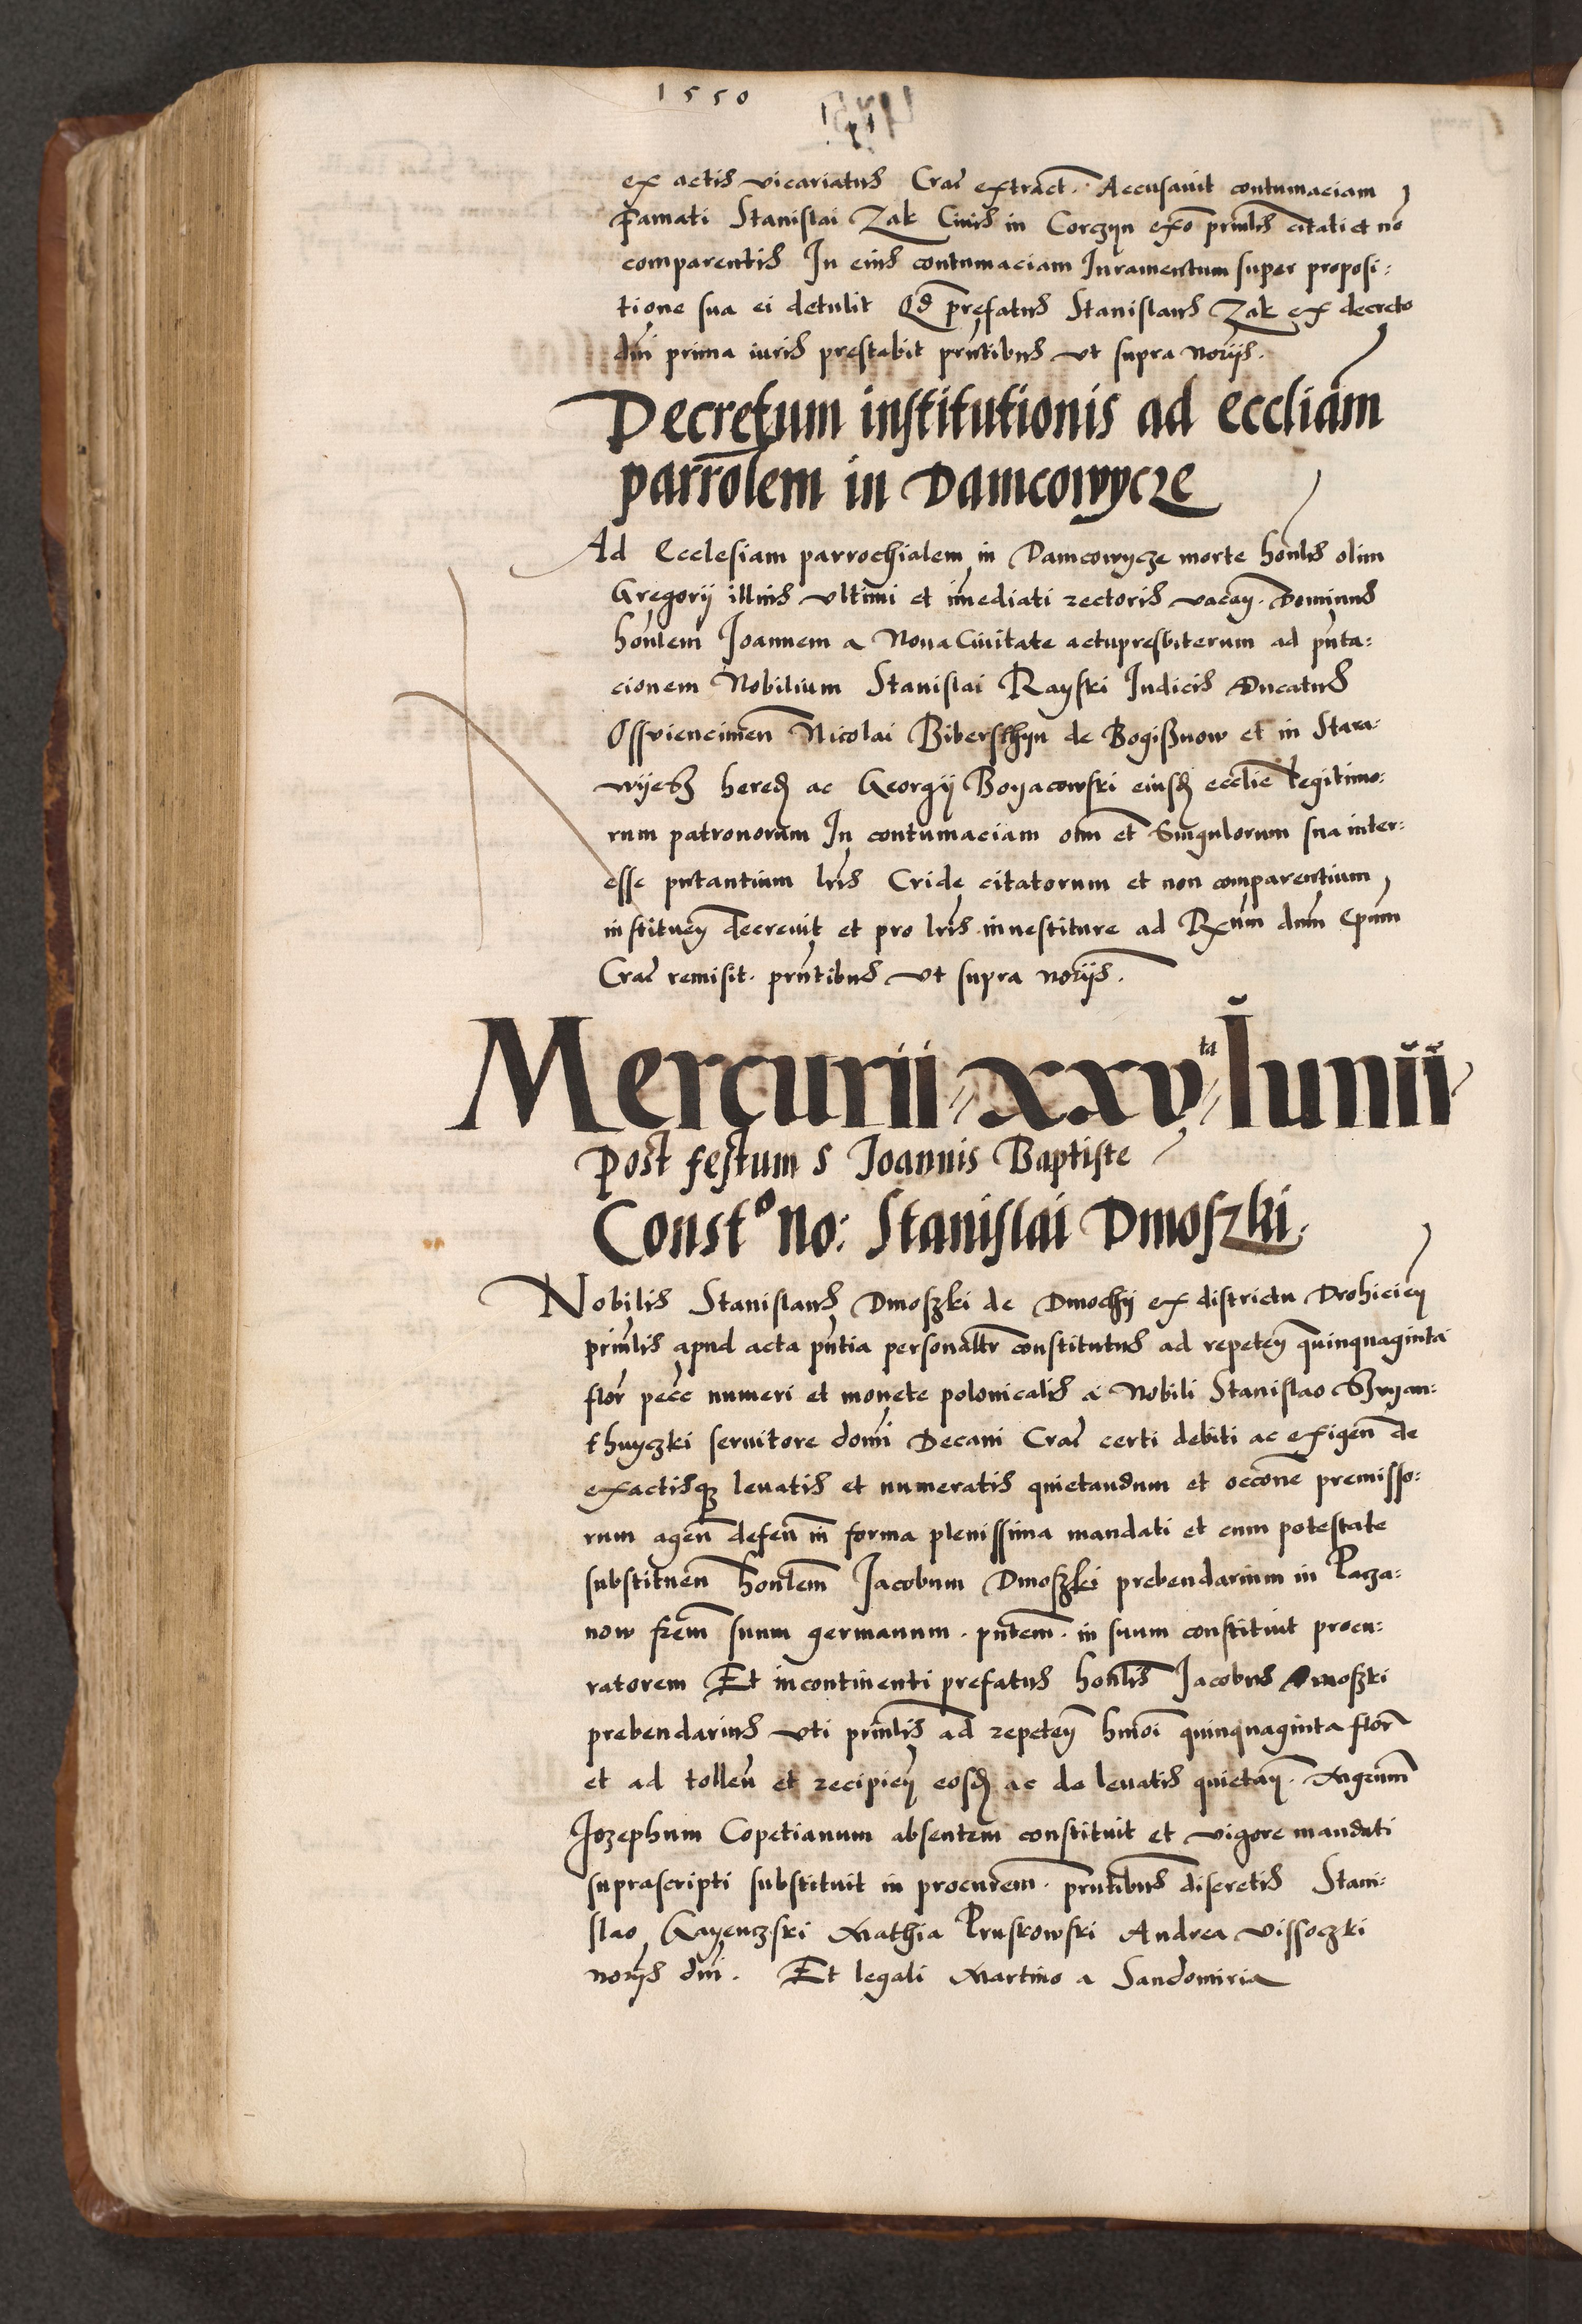 1550
ex actis vicariatus Crac̄ extract. Accusavit contumaciam
Famati Stanislai Zak Civis in Corczyn exõ prn̄lis citati et nõ
comparentis In eius contumaciam Iuramentum super proposi:
tione sua ei detulit Qd̄ prefatus Stanislaus Zak ex decreto
dn̄i prima iuris prestabit prn̄tibus vt supra nor̄ijs.
Decretum institutionis ad eccliam
parrolem in Damcowycze
Ad Ecclesiam parrochialem in Damcowycze morte hon̄lis olim
Gregorij illius vltimi et im̄ediati rectoris vacan̄. Dominus
hon̄lem Joannem a Nova Civitate actupresbiterum ad pn̄ta:
cionem Nobilium Stanislai Rayski Judicis Ducatus
Osswiencimen̄ Nicolai Biberschyn de Bogißnow et in Stara
wijesz hered̄ ac Georgij Boyacowski eiusd̄ ecclie legitimo:
rum patronorum In contumaciam om̄ et Singulorum sua inter:
esse putantium lr̄is Cride citatorum et non comparentium
instituen̄ decrevit et pro lr̄is investiture ad Rx̄um dn̄m Epūm
Crac̄ remisit. prn̄tibus vt supra nor̄ijs.
Mercurii xxv ta Iunii
Post festum S Joannis Baptiste
Const° no: Stanislai Dmoszki.
Nobilis Stanislaus Dmoszki de Dmochij ex districtu Drohicien̄
prn̄lis apud acta pn̄tia personaltr̄ constitutus ad repeten̄ quinquaginta
flor̄ pecc̄ numeri et monete polonicalis a Nobili Stanislao
thnyczki servitore domī Decani Crac̄ certi debiti ac exigen̄ de
exactisq₃ levatis et numeratis quietandum et occōne premisso:
rum agen̄ defen̄ in forma plenissima mandati et cum potestate
substituen̄ hon̄lem̄ Jacobum Dmoszki prebendarium in Pacza:
now fr̄em suum germanum. pn̄tem. in suum constituit procu:
ratorem Et incontinenti prefatus hon̄lis Jacobus Dmoszki
prebendarius vti prn̄lis ad repeten̄ hmoī quinquaginta flor̄
et ad tollen̄ et recipien̄ eosd̄ ac de levatis quietan̄. Mgr̄um
Jozephum Copetianum absentem constituit et vigore mandati
suprascripti substituit in procur̄em. prn̄tibus discretis Stani:
slao Gayenczski Mathia Pruskowski Andrea Vissoczki
nor̄ijs dn̄i. Et legali Martino a Sandomiria